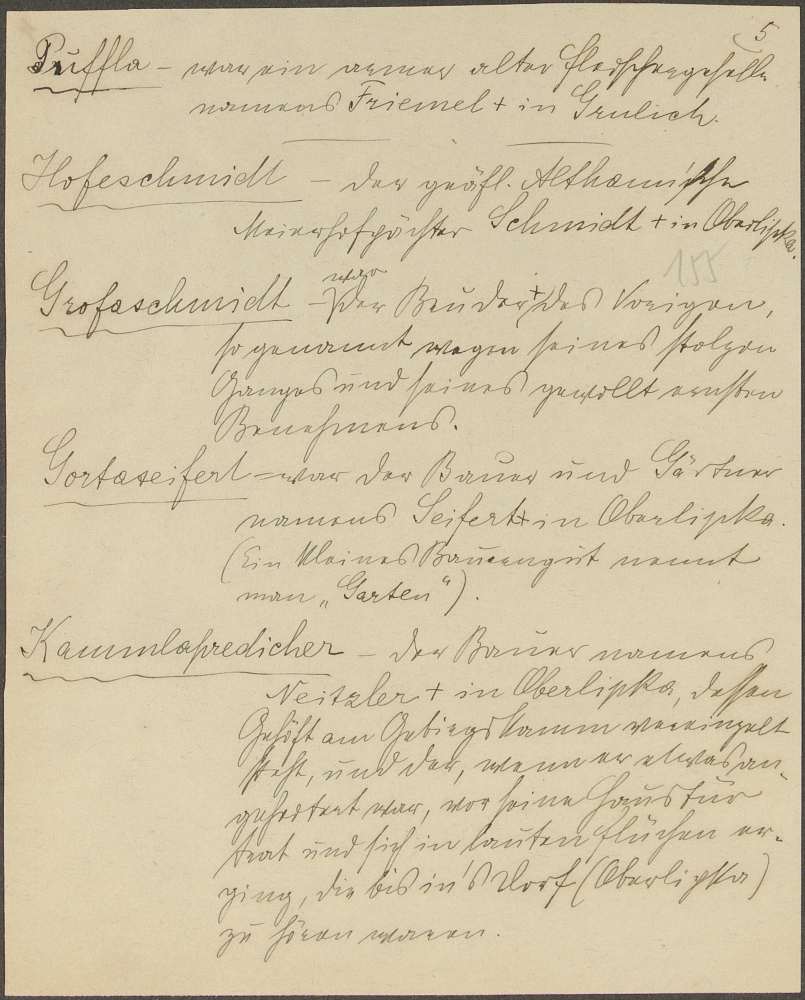 5
Puffla – war ein armer alter Fleischergeselle
namens Friemel + in Grulich.
Hofeschmidt – der gräfl. Althann'sche
Meierhofpächter Schmidt + in Oberlipka.
155
war
Grofaschmidt – der Bruder + des Vorigen,
so genannt wegen seines stolzen
Ganges und seines gewollt ernsten
Benehmens.
Gortaseifert – war der Bauer und Gärtner
namens Seifert + in Oberlipka.
(Ein kleines Bauerngut nennt
man „Garten“).
Kammlapredicher – der Bauer namens
Neitzler + in Oberlipka, dessen
Gehöft am Gebirgskamm vereinzelt
steht, und der, wenn er etwas an-
geheitert war, vor seine Haustür
trat und sich in lauten Flüchen er-
ging, die bis in's Dorf (Oberlipka)
zu hören waren.